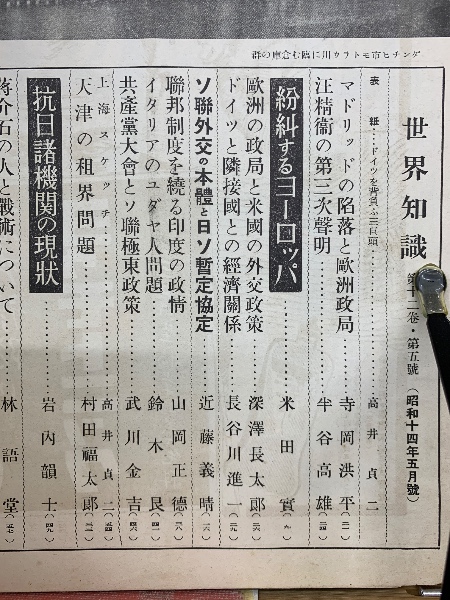 群の庫倉む臨に川カラトモ市ヒチンゲ
世界知識 第十二卷・第五號(昭和十四年五月號)
表紙…ドイツを背負ふ三巨頭………高井貞二
マドリッドの陷落と歐洲政局………寺岡洪平(一二)
汪精衞の第三次聲明………半谷高雄(一四)
紛糾するヨーロッパ………米田實(六)
歐洲の政局と米國の外交政策………深澤長太郎(二六)
ドイツと隣接國との經濟關係………長谷川進一(二九)
ソ聯外交の本體と日ソ暫定協定………近藤義晴(六)
聯邦制度を繞る印度の政情………山岡正德(三八)
イタリアのユダヤ人問題………鈴木艮(四一)
共產黨大會とソ聯極東政策………武川金吉(四六)
上海スケッチ………高井貞二(四)
天津の租界問題………村田福太郎(三)
抗日諸機關の現狀………岩內韻士(四九)
蔣介石の人と戰術について………林語堂(五七)